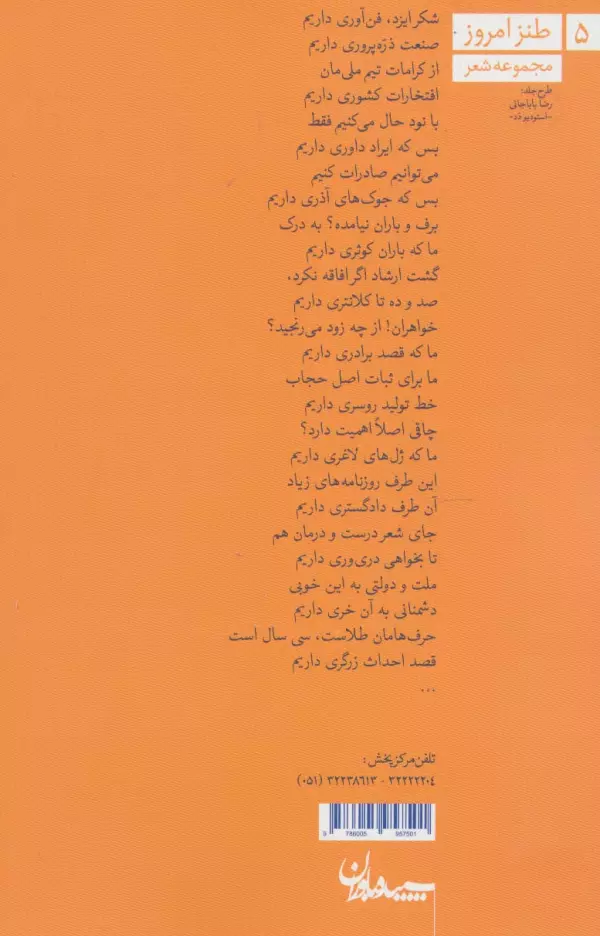 ۵
طنز امروز
مجموعه شعر
طرح جلد:
رضا باباجانی
-استودیو دُد-
شکر ایزد، فن‌آوری داریم
صنعت ذرّه‌پروری داریم
از کرامات تیم ملی‌مان
افتخارات کشوری داریم
با نود حال می‌کنیم فقط
بس که ایراد داوری داریم
می‌توانیم صادرات کنیم
بس که جوک‌های آذری داریم
برف و باران نیامده؟ به درک
ما که باران کوثری داریم
گشت ارشاد اگر افاقه نکرد،
صد و ده تا کلانتری داریم
خواهران! از چه زود می‌رنجید؟
ما که قصد برادری داریم
ما برای ثبات اصل حجاب
خط تولید روسری داریم
چاقی اصلاً اهمیت دارد؟
ما که ژل‌های لاغری داریم
این طرف روزنامه‌های زیاد
آن طرف دادگستری داریم
جای شعر درست و درمان هم
تا بخواهی دری‌وری داریم
ملت و دولتی به این خوبی
دشمنانی به آن خری داریم
حرف‌هامان طلاست، سی سال است
قصد احداث زرگری داریم
...
تلفن مرکز پخش:
۳۲۲۲۲۲۰۴ - ۳۲۲۳۸۶۱۳ (۰۵۱)
9 786005 957501
سپیده‌باوران